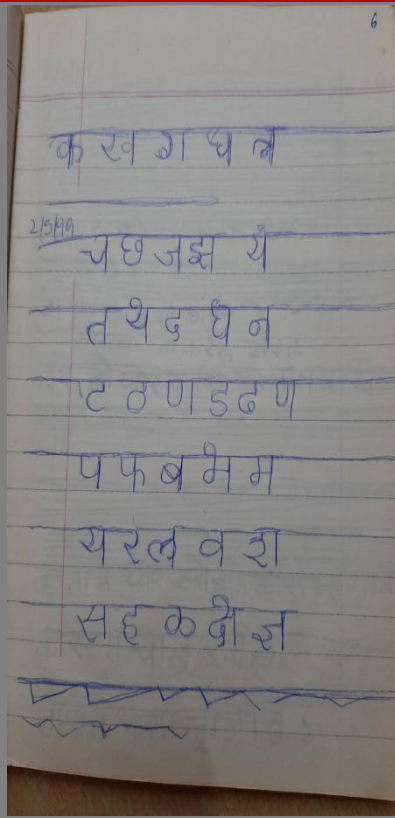 6
क ख ग घ ल
2/5/99
च छ ज झ ये
त थे द घ न
ट ठ ण ड ढ ण
प फ ब भ म
य र ल व श
स ह ळ क्षे ज्ञ